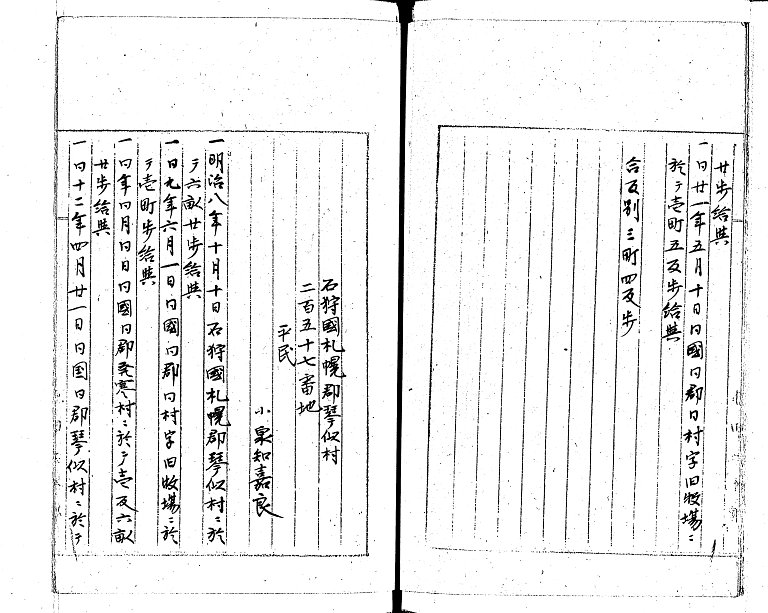 廿歩給與
一同廿一年五月十日同國同郡同村字旧牧場ニ
於テ壱町五反歩給與
合反別三町四反歩
石狩國札幌郡琴似村
二百五十七番地
平民
小泉知嘉良
一明治八年十月十日石狩國札幌郡琴似村ニ於
テ六畝廿歩給與
一同九年六月一日同國同郡同村字旧牧場ニ於
テ壱町歩給與
一同年同月同日同國同郡発寒村ニ於テ壱反六畝
廿歩給與
一同十二年四月廿一日同国同郡琴似村ニ於テ